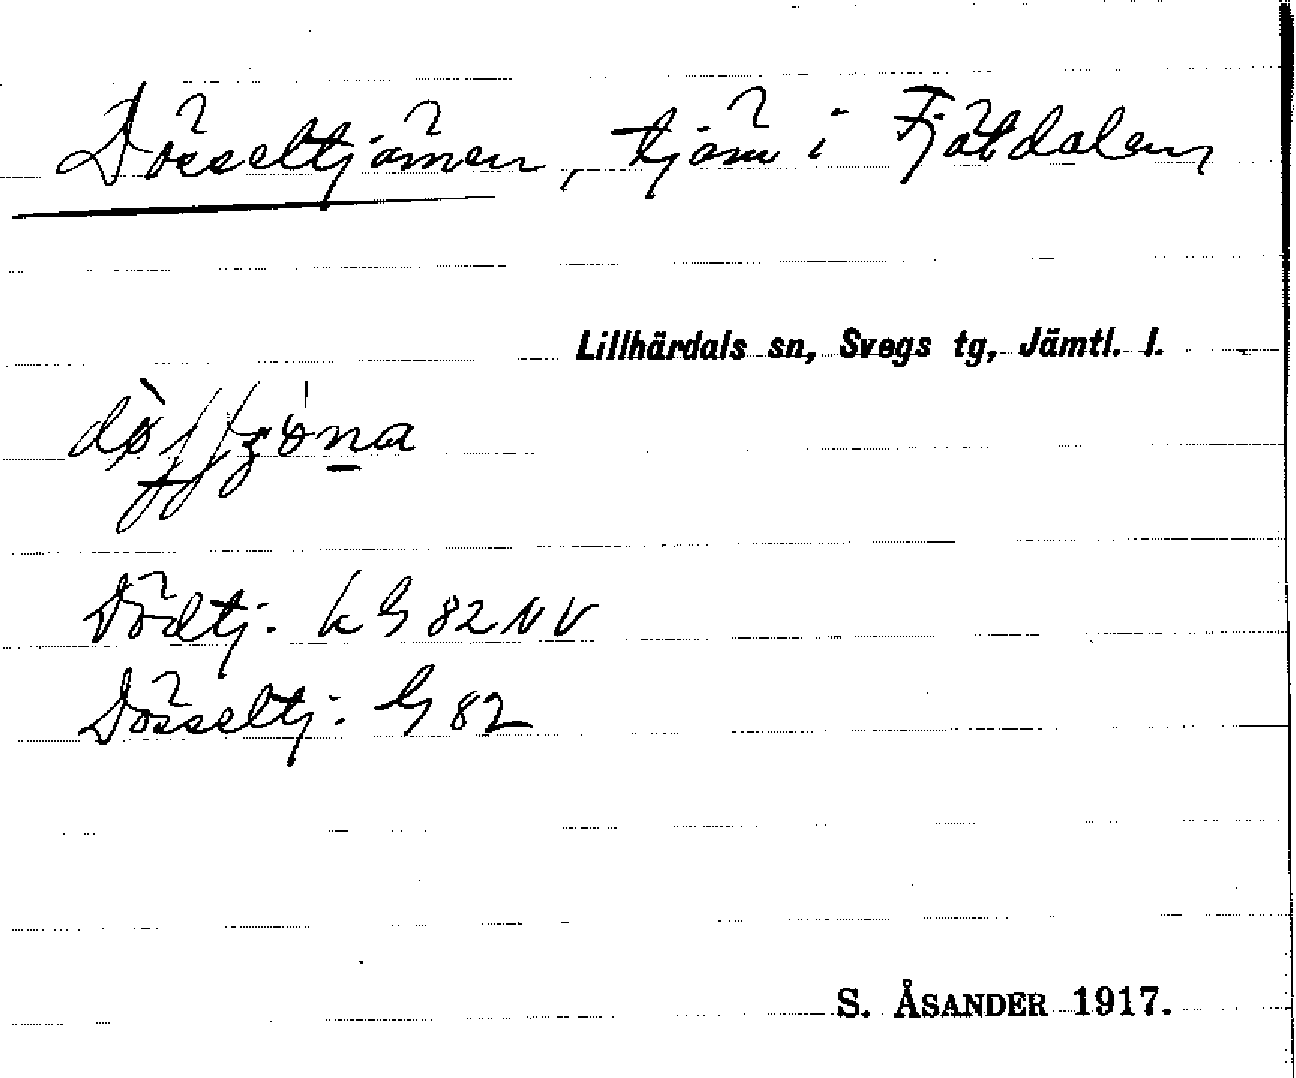 Dösseltjärnen, tjärn i Fjätdalen,
Lillhärdals sn, Svegs tg, Jämtl. l.
Dödtj. k G 82 NV
Dösseltj. G 82
S. ÅSANDER 1917.